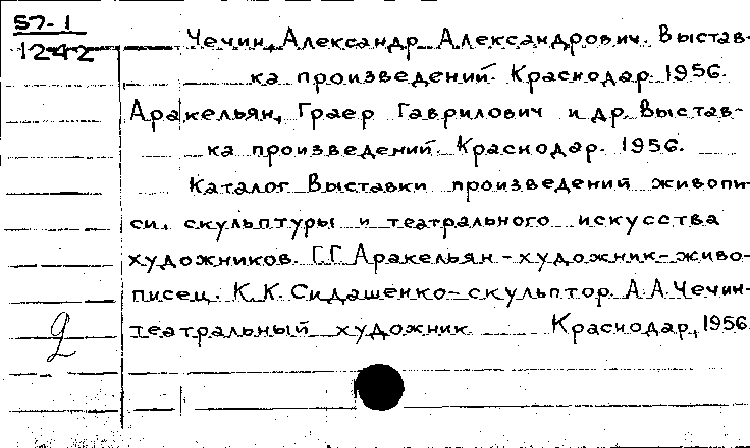 57-1
1242
Чечин, Александр Александрович. Выстав-
ка произведений. Краснодар. 1956.
Аракельян, Граер Гаврилович и др. Выстав-
ка произведений. Краснодар. 1956.
Каталог Выставки произведений живопи-
си, скульптуры и театрального искусства
художников. Г.Г. Аракельян - художник-живо-
писец. К.К. Сидашенко - скульптор. А.А. Чечин-
театральный художник Краснодар, 1956.
2